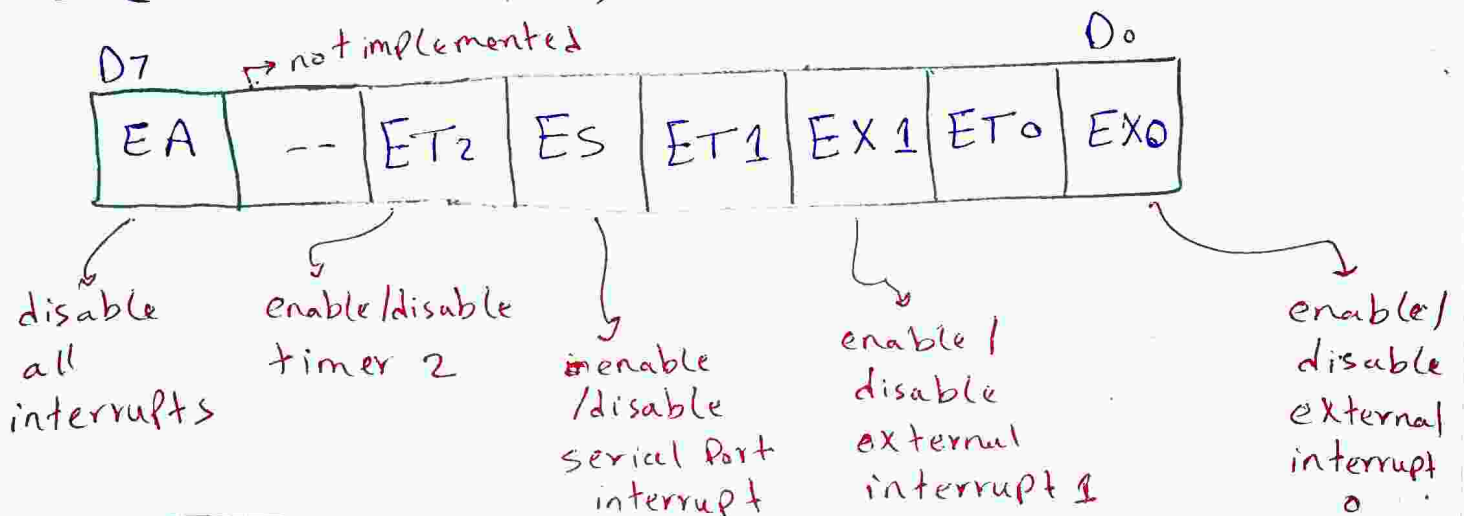 D7 → not implemented D0
EA -- ET2 ES ET1 EX1 ET0 EX0
disable
all
interrupts
enable/disable
timer 2
enable
/disable
serial Port
interrupt
enable/
disable
external
interrupt 1
enable/
disable
external
interrupt
0